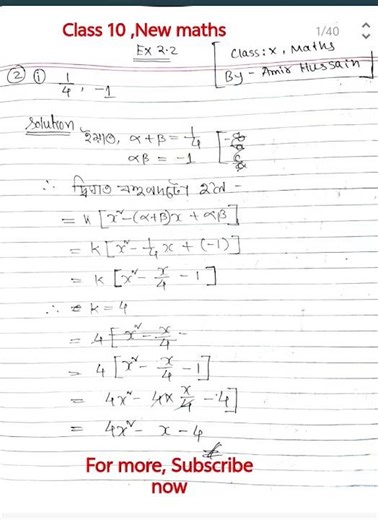 Class 10 ,New maths
1/40
Ex 2.2
[Class: X, Maths
By - Amir Hussain]
② ⓘ 1/4, -1
Solution ইয়াত, α+β = 1/4
αβ = -1
∴ দ্বিঘাত বহুপদটো হ'ল -
= k [x² - (α+β)x + αβ]
= k [x² - 1/4 x + (-1)]
= k [x² - x/4 - 1]
∴ k = 4
= 4 [x² - x/4
= 4 [x² - x/4 - 1]
= 4x² - 4 × x/4 - 4]
= 4x² - x - 4
For more, Subscribe
now